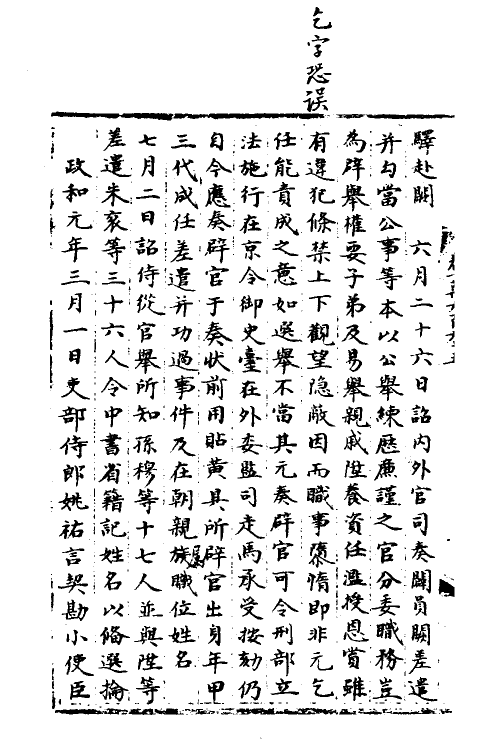 乞字恐誤
驛赴闕　六月二十六日詔内外官司奏闢員闕差遣
并勾當公事等本以公舉練歷廉謹之官分委職務豈
為辟舉權要子弟及易舉親戚陞養資任濫授恩賞雖
有違犯條禁上下觀望隐蔽因而職事隳惰即非元乞
任能責成之意如選舉不當其元奏辟官可令刑部立
法施行在京令御史臺在外委監司走馬承受按劾仍
自今應奏辟官于奏狀前用貼黄具所辟官出身年甲
三代成任差遣并功過事件及在朝親族屬職位姓名
七月二日詔侍從官舉所知孫穆等十七人並與陞等
差遣朱衮等三十六人令中書省籍記姓名以俻選掄
政和元年三月一日吏部侍郎姚祐言契勘小使臣